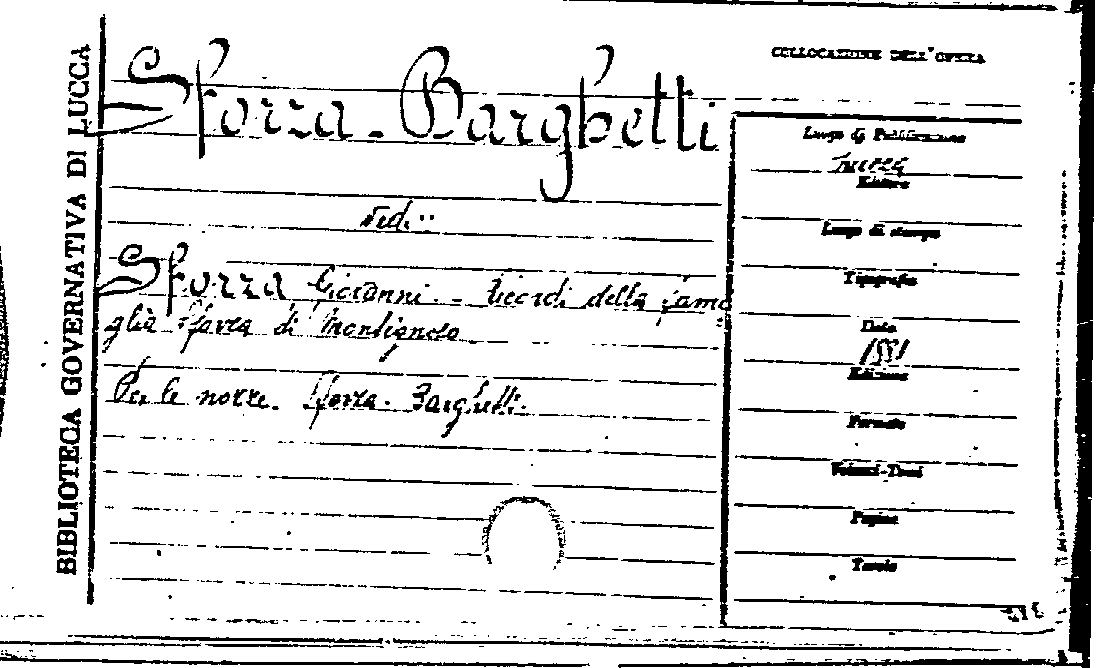 BIBLIOTECA GOVERNATIVA DI LUCCA
Sforza - Barghetti
Vedi:
Sforza Giovanni. - Ricordi della fami
glia Sforza di Montignoso
Per le nozze. Sforza - Barghetti.
COLLOCAZIONE DELL'OPERA
Luogo di Pubblicazione
Lucca
Editore
Luogo di stampa
Tipografia
Data
Edizione
Formato
Volumi-Tomi
Pagine
Tavole